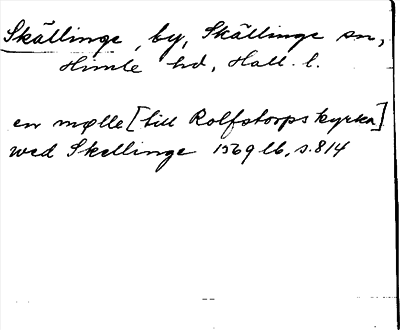 Skällinge, by, Skällinge sn,
Himle hd, Hall. l.
en mølle [till Rolfstorps kyrka]
wed Skellinge 1569 lb, s. 814